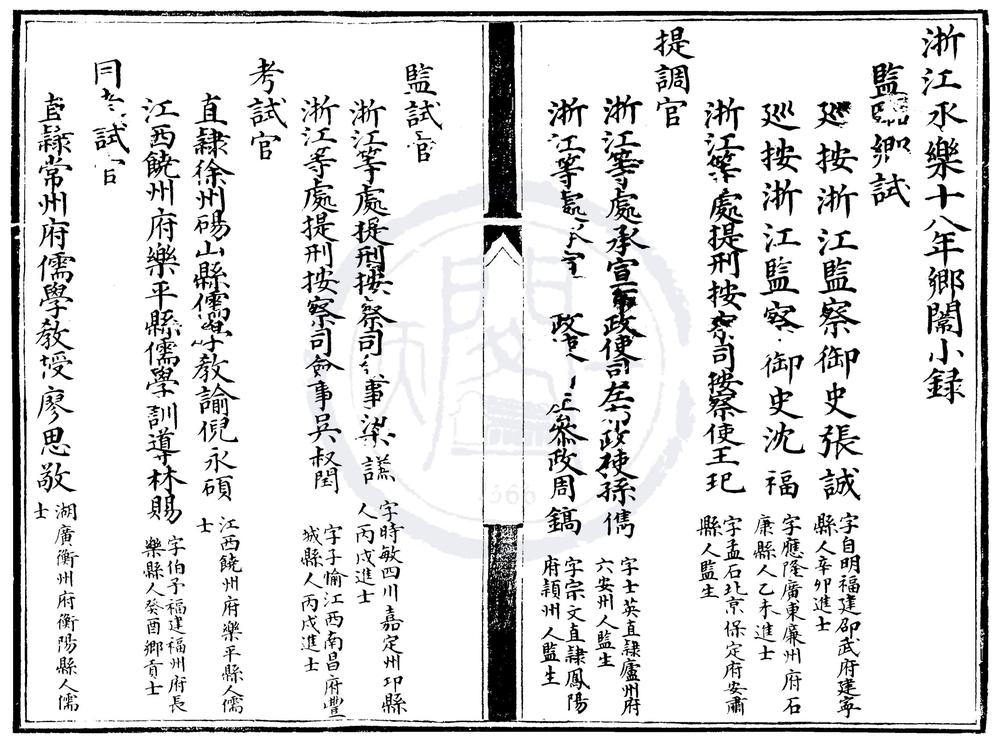 浙江永樂十八年鄉闈小録
監臨鄉試
巡按浙江監察御史張誠
字自明福建邵武府建寧
縣人辛卯進士
巡按浙江監察御史沈福
字應隆廣東廉州府石
康縣人乙未進士
浙江等處提刑按察司按察使王玘
字孟石北京保定府安肅
縣人監生
提調官
浙江等處承宣布政使司左布政使孫儁
字士英直隷廬州府
六安州人監生
浙江等處承宣 政使 左叅政周鎬
字宗文直隷鳳陽
府潁州人監生
監試官
浙江等處提刑按察司僉事梁謙
字時敏四川嘉定州邛縣
人丙戌進士
浙江等處提刑按察司僉事吳叔閏
字子愉江西南昌府豐
城縣人丙戌進士
考試官
直隷徐州碭山縣儒學教諭倪永碩
江西饒州府樂平縣人儒
士
江西饒州府樂平縣儒學訓導林賜
字伯予福建福州府長
樂縣人癸酉鄉貢士
同考試官
直隷常州府儒學教授廖思敬
湖廣衡州府衡陽縣人儒
士